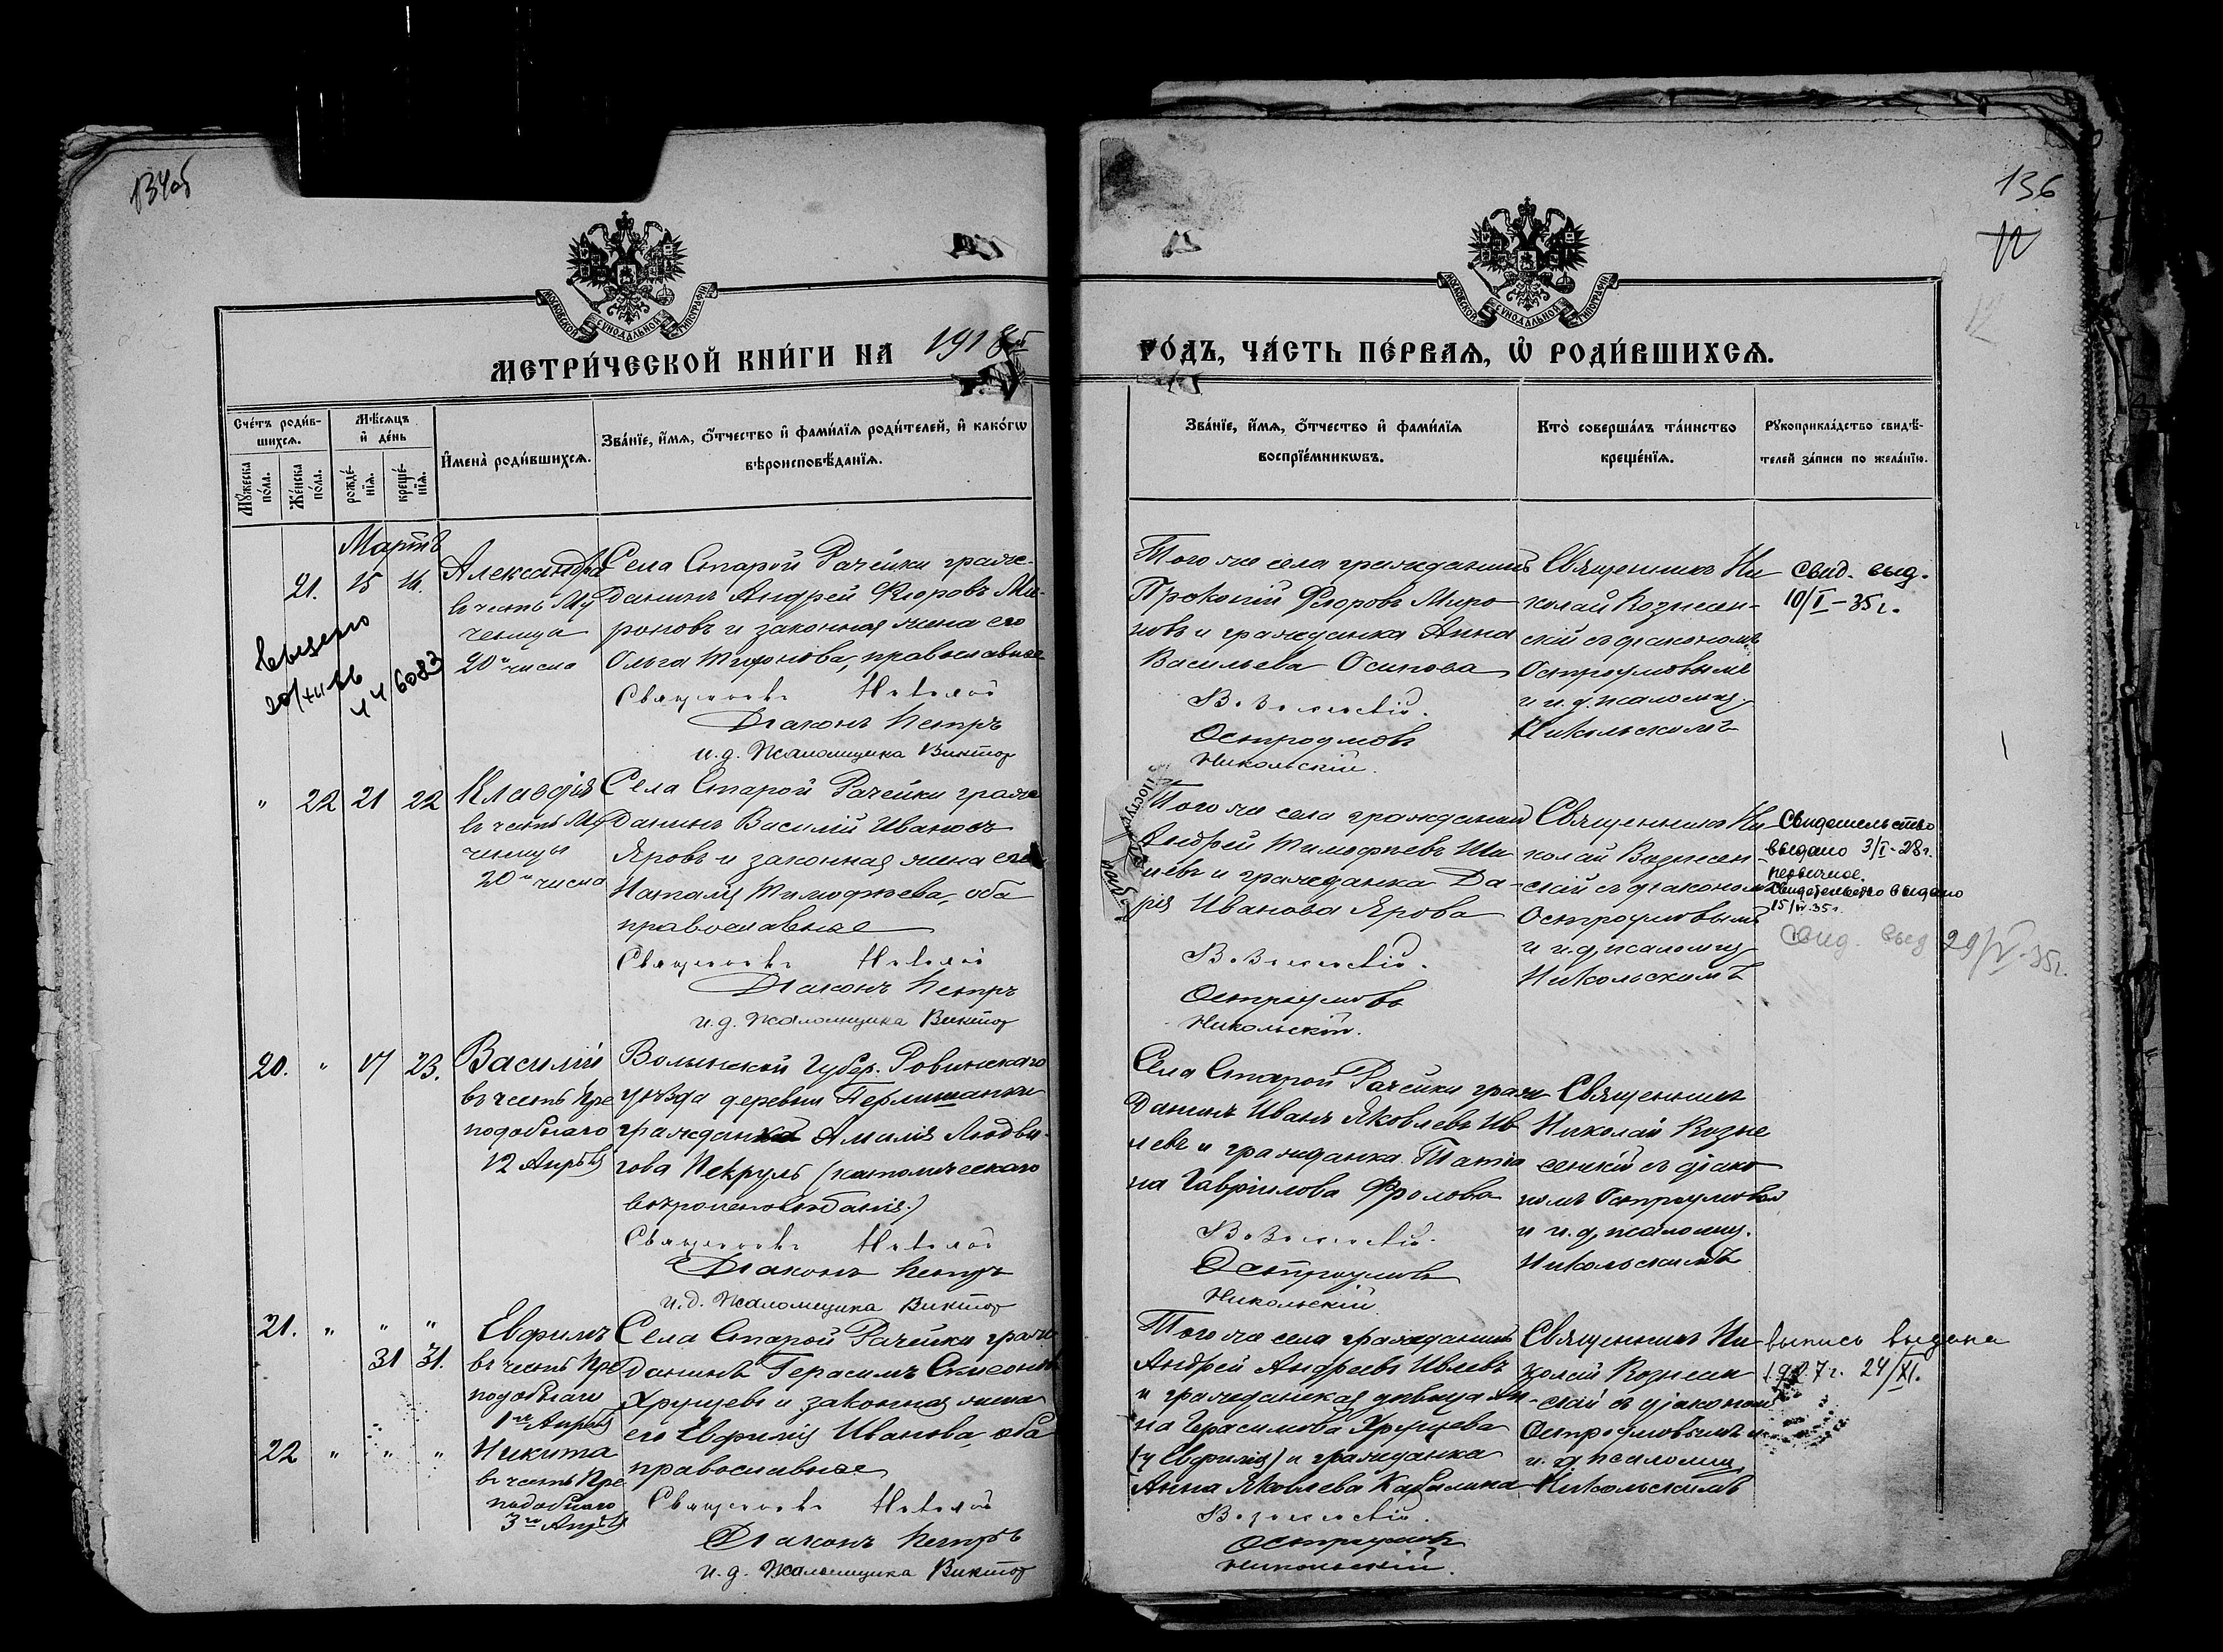 134об
136
12
12
МОСКОВСКОЙ СѴНОДАЛЬНОЙ ТИПОГРАФІИ
МОСКОВСКОЙ СѴНОДАЛЬНОЙ ТИПОГРАФІИ
МЕТРИ́ЧЕСКОЙ КНИ́ГИ НА 1918й
РО́ДЪ, ЧА́СТЬ ПЕ́РВАѦ, Ѡ҆ РОДИ́ВШИХСѦ.
Сче́тъ роди́в-
шихсѧ.
Мѣ́сѧцъ
и҆ де́нь
Мꙋ́жеска по́ла.
Же́нска по́ла.
рожде́-
нїѧ.
креще́-
нїѧ.
И҆мена̀ роди́вшихсѧ.
Зва́нїе, и҆́мѧ, о҆́тчество и҆ фами́лїѧ роди́телей, и҆ како́гѡ
вѣроисповѣ́данїѧ.
Зва́нїе, и҆́мѧ, о҆́тчество и҆ фами́лїѧ
воспрїе́мникѡвъ.
Кто̀ соверша́лъ та́инство
креще́нїѧ.
Рꙋкоприкла́дство свидѣ́-
телей за́писи по жела́нїю.
Мартъ
21. 15 16.
Александра
въ честь Му
ченицы
20го числа
Села Старой Рачейки граж-
данинъ Андрей Ѳедоровъ Ми-
роновъ и законная жена его
Ольга, православные
Священникъ Николай
Діаконъ Петръ
и.д. Псаломщика Виктор
Того же села гражданинъ
Прокопій Ѳедоровъ Миро
новъ и гражданка Анна
Васильева Осипова
Вознесенскій.
Остроумовъ
Никольскій.
Священникъ Ни
колай Вознесен-
скій съ діакономъ
Остроумовымъ
и и.д. псаломщ.
Никольскимъ
свид. выд.
10/I-35г.
6083
" 22 21 22
Клавдія
въ честь Му
ченицы
20го числа
Села Старой Рачейки граж
данинъ Василій Ивановъ
Яровъ и законная жена его
Наталія Тимофеева, оба
православные
Священникъ Николай
Діаконъ Петръ
и.д. Псаломщика Виктор
Того же села гражданинъ
Андрей Тимофеевъ
и гражданка Да-
рія Иванова Ярова
Вознесенскій.
Остроумовъ
Никольскій.
Священникъ Ни
колай Вознесен
скій съ діакономъ
Остроумовымъ
и и.д. псаломщ
Никольскимъ
Свидетельство
выдано 3/I-28г.
первичное.
свидетельство выдано
15/IV.35г.
свид. выд 29/IV-35г.
20. " 17 23.
Василій
въ честь Пре
подобнаго
12 Апрѣля
Волынской Губер. Ровинскаго
уѣзда деревни
гражданка Амалія Людви-
гова Пекруль (католическаго
вѣроисповѣданія.)
Священникъ Николай
Діаконъ Петръ
и.д. Псаломщика Виктор
Села Старой Рачейки граж
данинъ Иванъ Яковлевъ Ив
левъ и гражданка Татіа
на Гавріилова Фролова
Вознесенскій.
Остроумовъ
Никольскій
Священникъ
Николай Возне
сенскій съ діако
номъ Остроумовым
и и.д. псаломщ.
Никольскимъ
21. " " "
31 31.
Евфимъ
въ честь Пре
подобнаго
1го Апрѣля
22 " " "
Никита
въ честь Пре
подобнаго
3го Апрѣля
Села Старой Рачейки граж
данинъ Герасимъ Симеоновъ
Хрущевъ и законная жена
его Евфимія Иванова, оба
православные
Священникъ Николай
Діаконъ Петръ
и.д. Псаломщика Виктор
Того же села гражданинъ
Андрей Андреевъ Ивлевъ
и гражданская дѣвица Ан
на Герасимова Хрущева
(у Евфимія) и гражданка
Анна Яковлева Кабалина
Вознесенскій.
Остроумовъ
Никольскій.
Священникъ Ни
колай Вознесен
скій съ діакономъ
Остроумовымъ и
и.д. псаломщ.
Никольскимъ
выпись выдана
1927г. 24/XI.